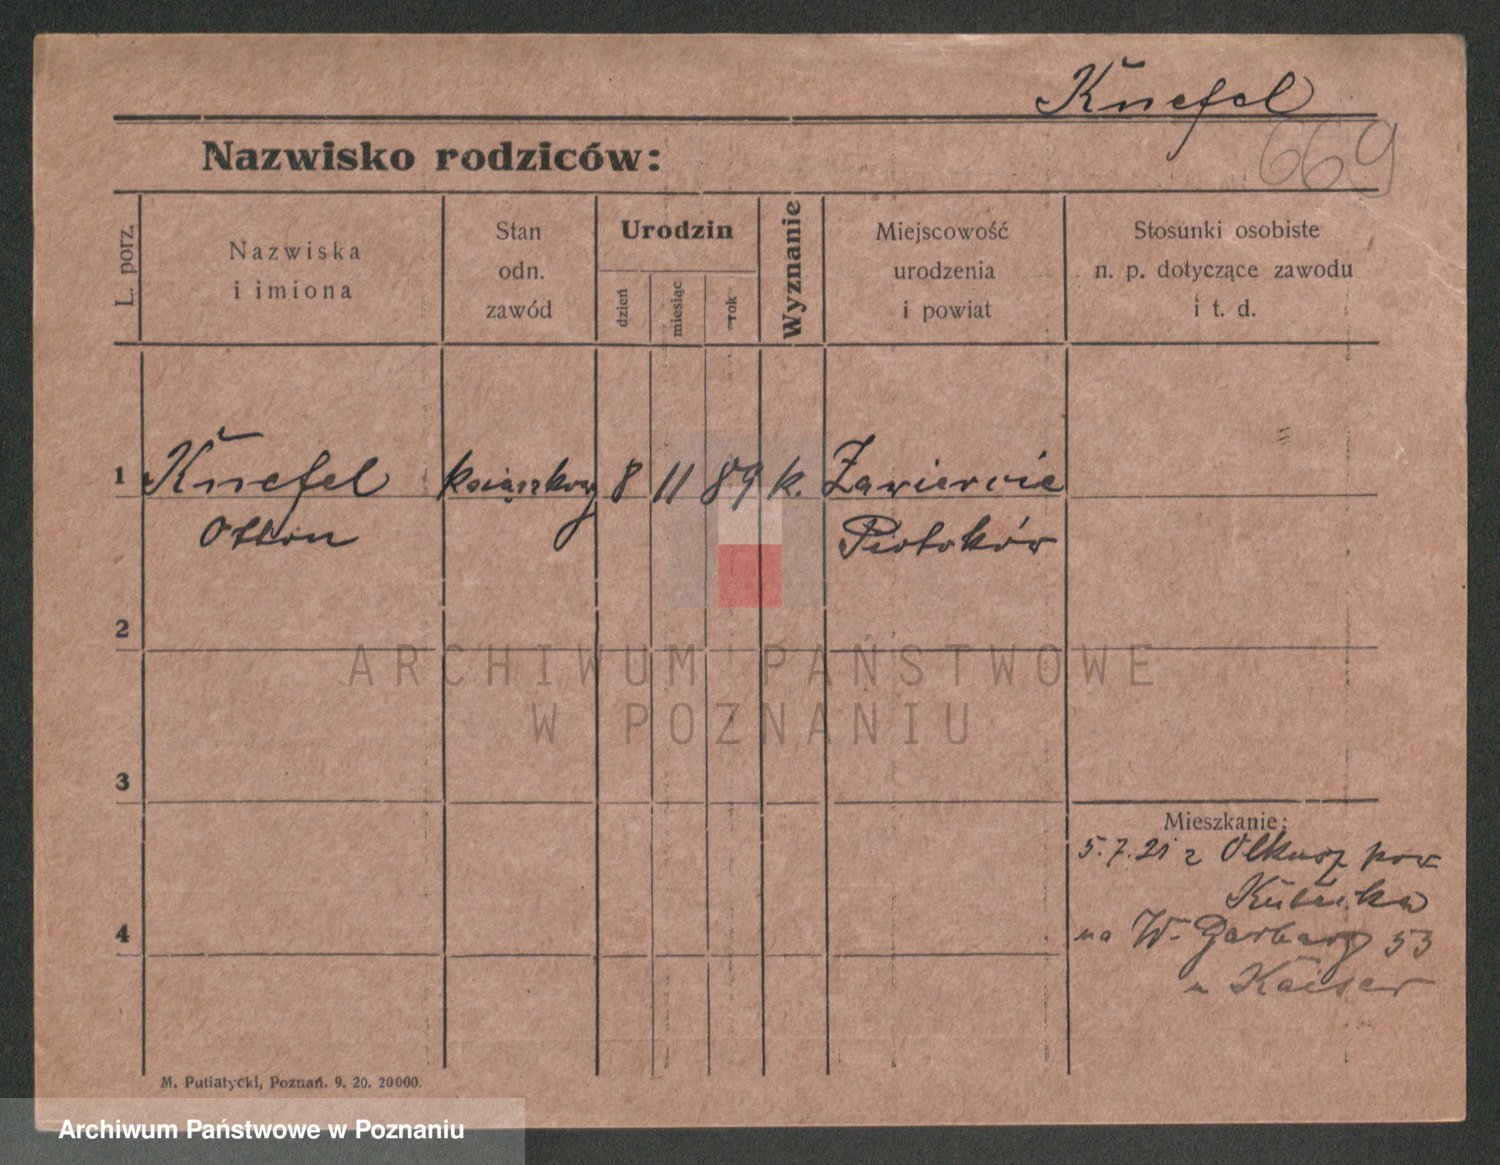 Knefel
669
Nazwisko rodziców:
L. porz.
Nazwiska
i imiona
Stan
odn.
zawód
Urodzin
dzień
miesiąc
rok
Wyznanie
Miejscowość
urodzenia
i powiat
Stosunki osobiste
n. p. dotyczące zawodu
i t. d.
1 Knefel książkowy 8 11 89 k. Zawiercie
Otton Piotrków
2
3
4
Mieszkanie:
5.7.21 z Olkusz pow
na W. Garbary 53
u Kaiser
M. Putiatycki, Poznań. 9. 20. 20000.
ARCHIWUM PAŃSTWOWE
W POZNANIU
Archiwum Państwowe w Poznaniu